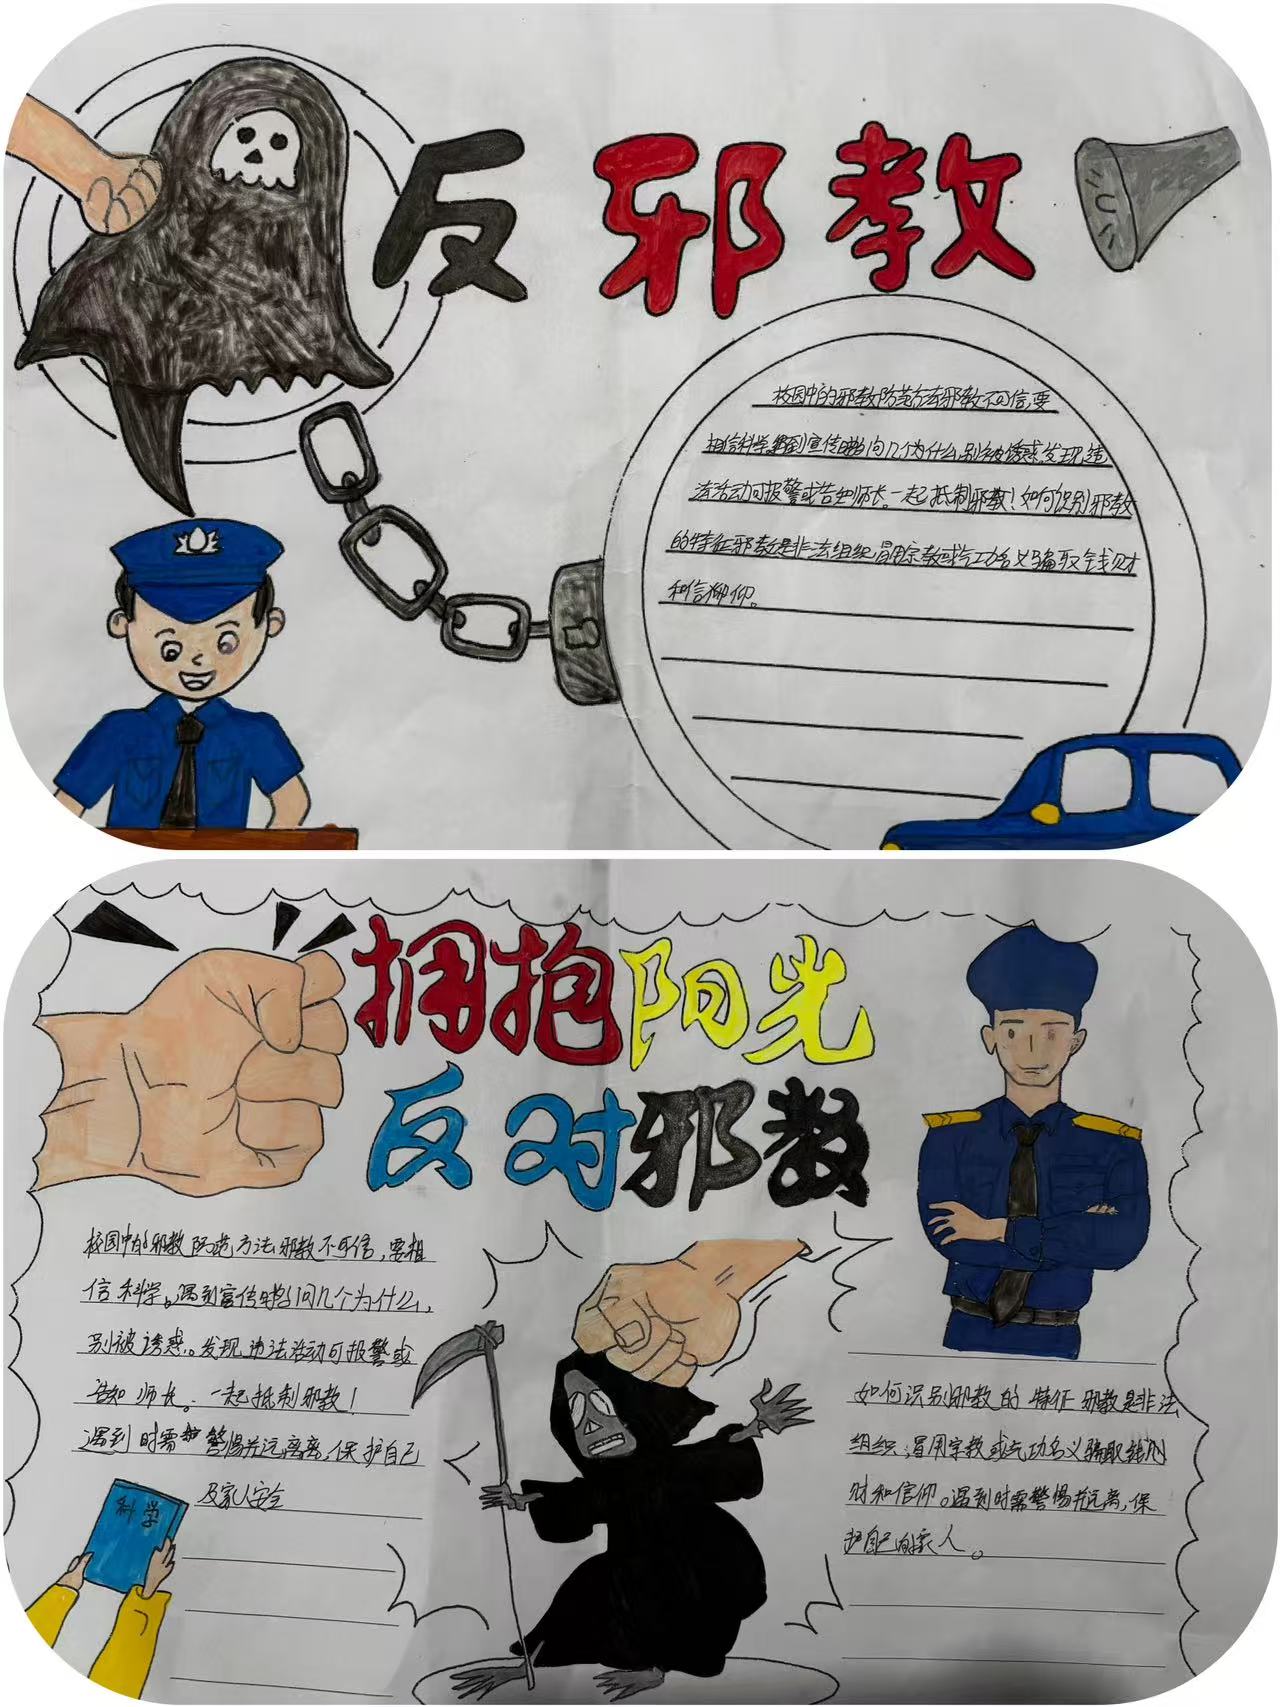 反邪教
校园中的邪教防范方法邪教不可信,要
相信科学。遇到宣传时多问几个为什么,别被诱惑发现违
法活动可报警或告知师长。一起抵制邪教!如何识别邪教
的特征邪教是非法组织冒用宗教或气功名义骗取钱财
和信仰。
拥抱阳光
反对邪教
校园中的邪教防范方法邪教不可信,要相
信科学。遇到宣传时多问几个为什么,
别被诱惑。发现违法活动可报警或
告知师长。一起抵制邪教!
遇到时需警惕并远离,保护自己
及家人安全
科学
如何识别邪教的特征邪教是非法
组织,冒用宗教或气功名义骗取钱
财和信仰。遇到时需警惕并远离,保
护自己家人。